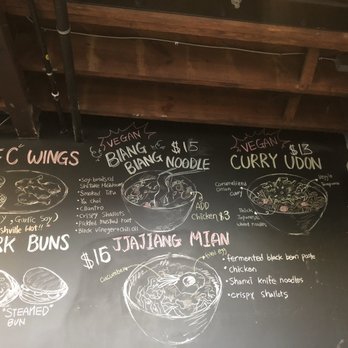 "C" WINGS
Garlic Soy
shville Hot!!
RK BUNS
"STEAMED"
BUN
VEGAN
BIANG $15
BIANG NOODLE
• Soy braised
Shiitake Mushroom
• Smoked Tofu
• Yu choi
• Cilantro
• Crispy Shallots
• Pickled Mustard Root
• Black vinegar + Chili oil
ADD
Chicken $3
VEGAN
$13
CURRY UDON
Caramelized
Onion
curry
Thick
Japanese
wheat noodle
JJAJIANG MIAN
$15
Cucumber
• fermented black bean paste
• Chicken
• Shanxi knife noodles
• crispy shallots